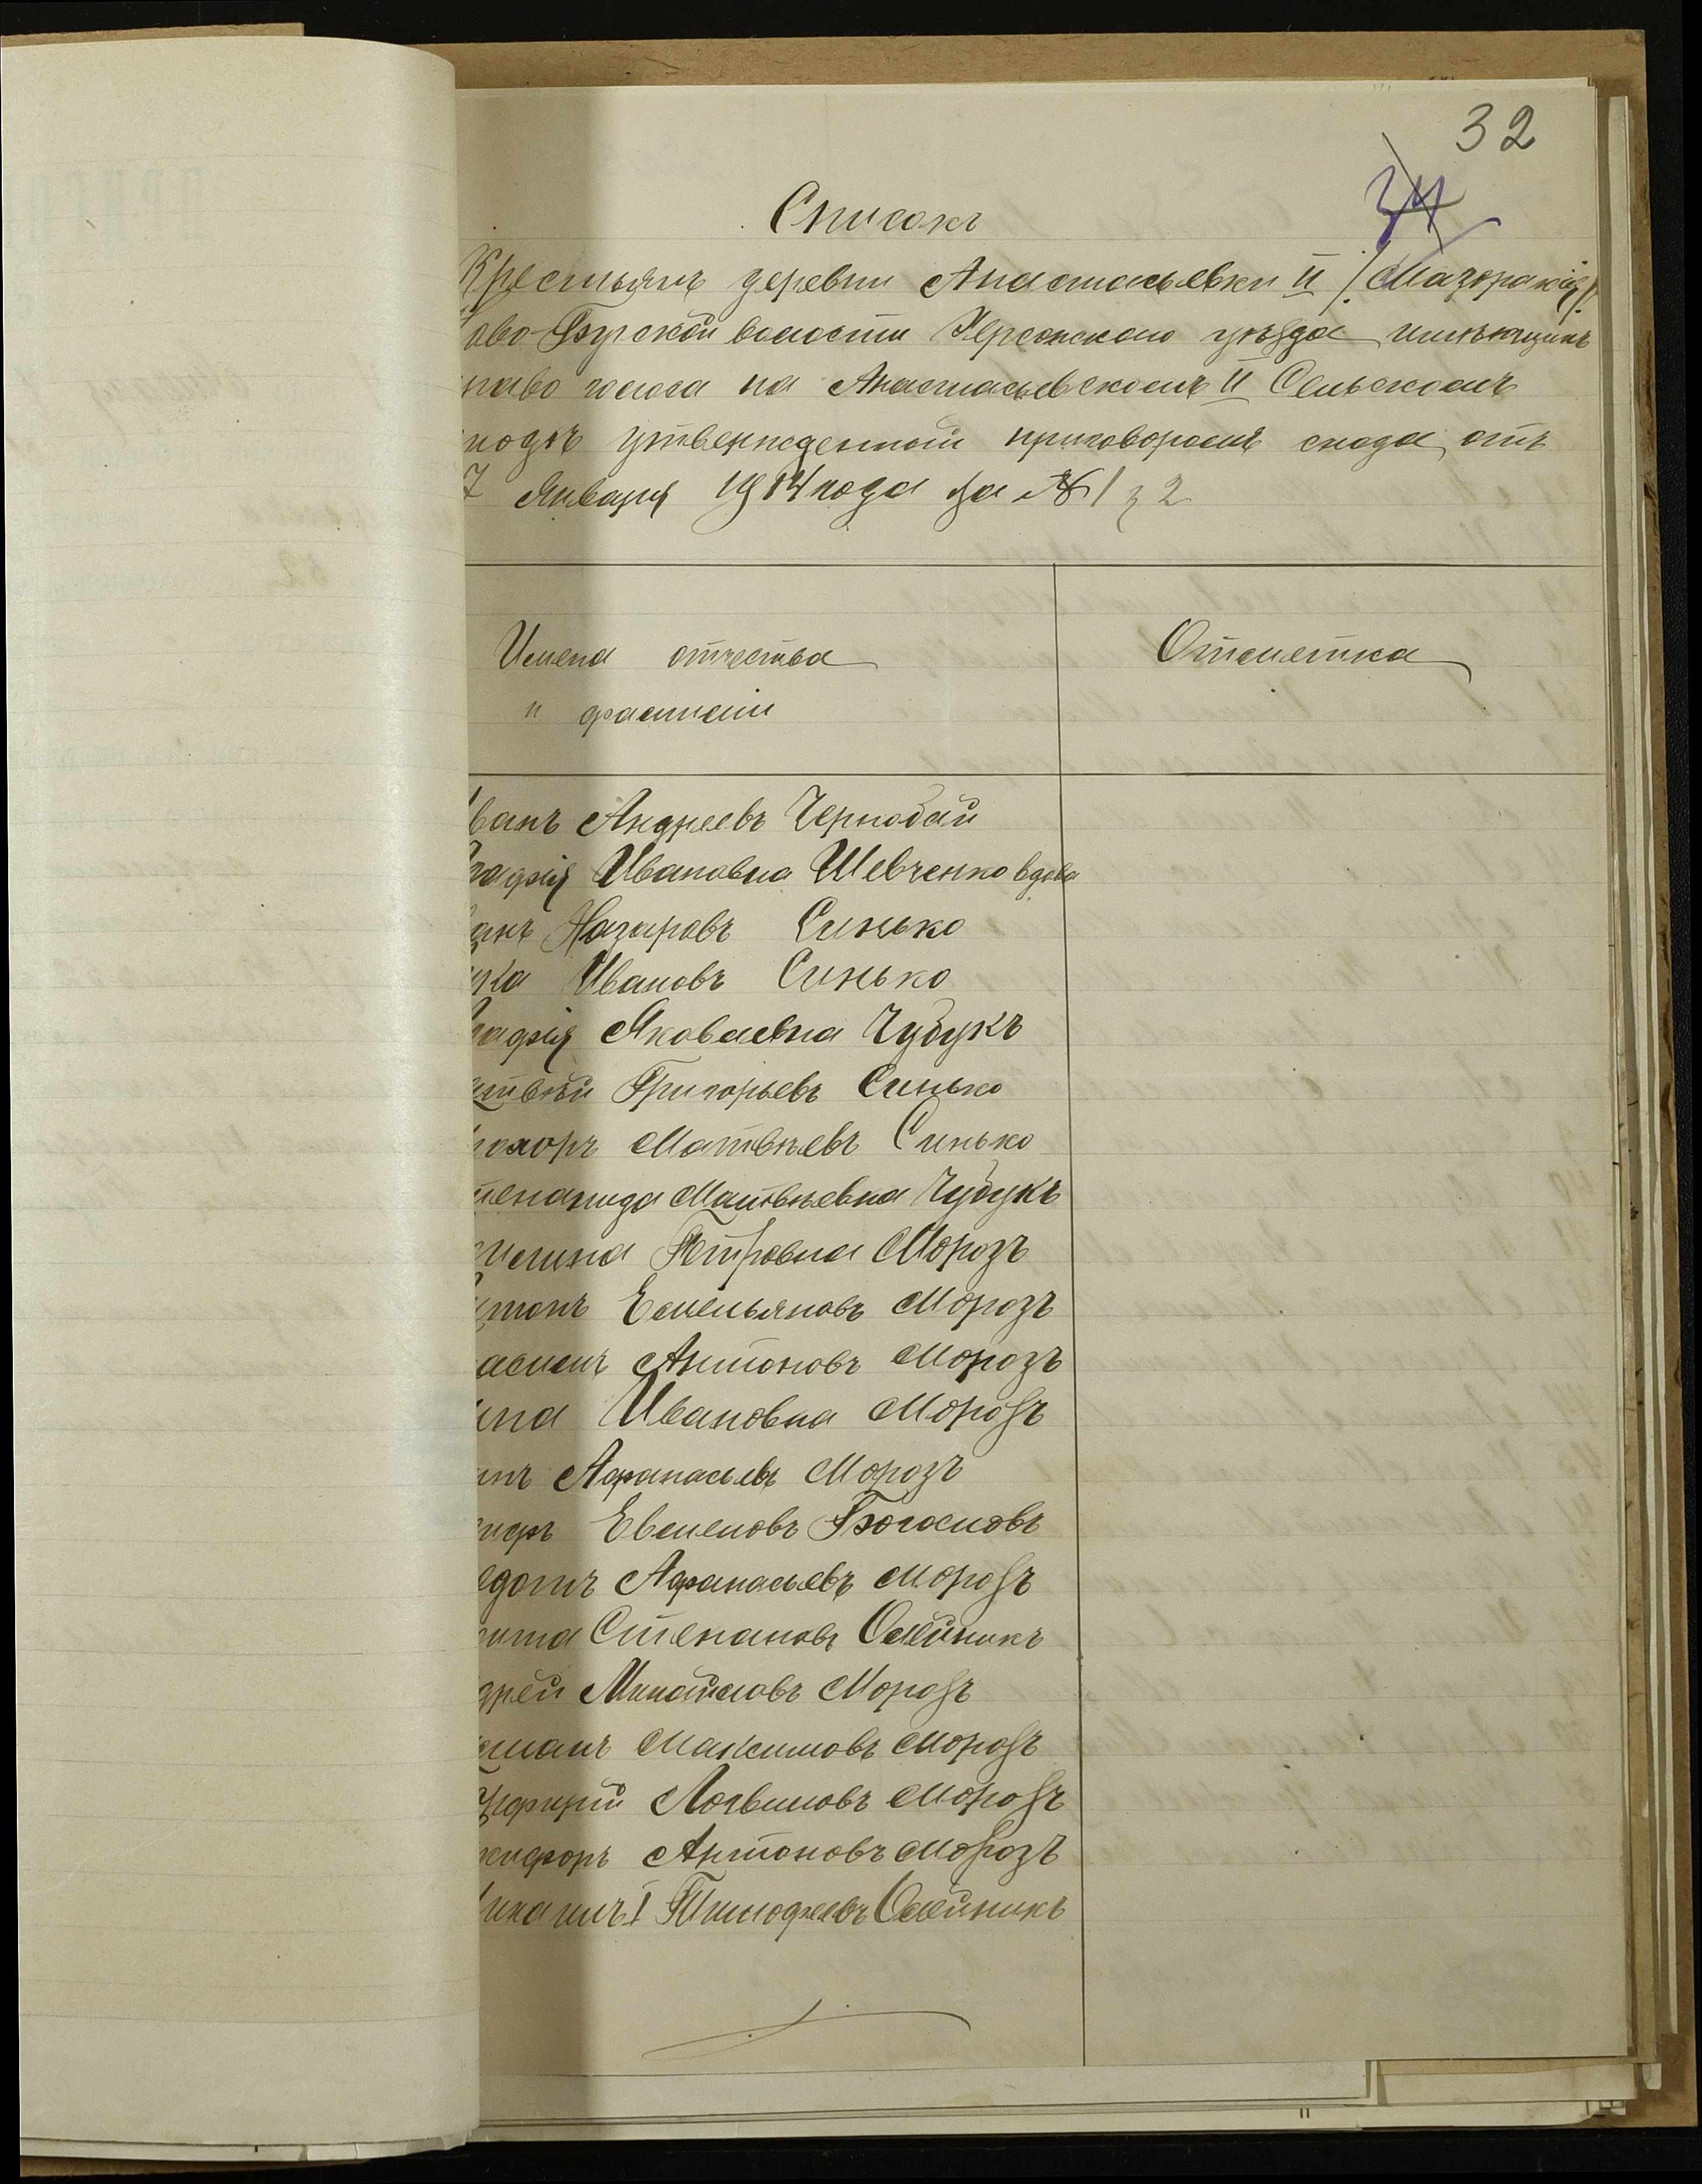 32
34
Списокъ
Крестьянъ деревни Анастасьевки II /Мазоракія/
ово-Бугской волости Херсонскаго уѣзда имѣющихъ
раво голоса на Анастасьевскомъ II Сельскомъ
ходѣ утвержденной приговоромъ схода отъ
7 Января 1914 года за № 1 2
Имена отчества
Отметка
и фамиліи
ванъ Андреевъ Чернобай
гафія Ивановна Шевченко вдова
ванъ Назаровъ Синько
ука Ивановъ Синько
гафія Яковлевна Чубукъ
атвѣй Григорьевъ Синько
рохоръ Матвѣевъ Синько
тепанида Матвѣевна Чубукъ
Петровна Морозъ
нтонъ Емельяновъ Морозъ
Антоновъ Морозъ
Ивановна Морозъ
анъ Афанасьевъ Морозъ
Евменовъ Богомовъ
едотъ Афанасьевъ Морозъ
Степановъ Олейникъ
дрей Михайловъ Морозъ
Максимовъ Морозъ
Логвиновъ Морозъ
икифоръ Антоновъ Морозъ
ихаилъ I Тимофеевъ Олейникъ